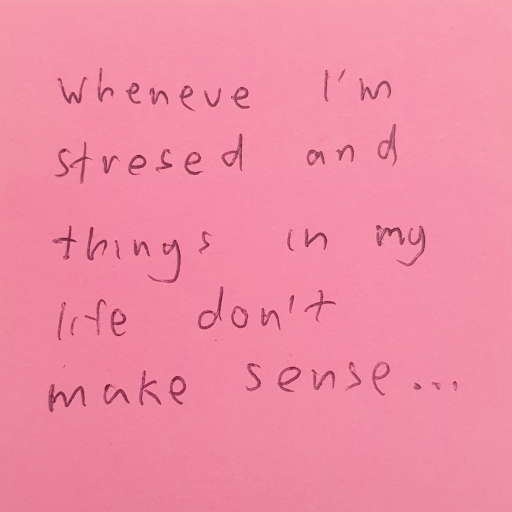 wheneve I'm
stresed and
things in my
life don't
make sense...